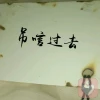 吊唁过去